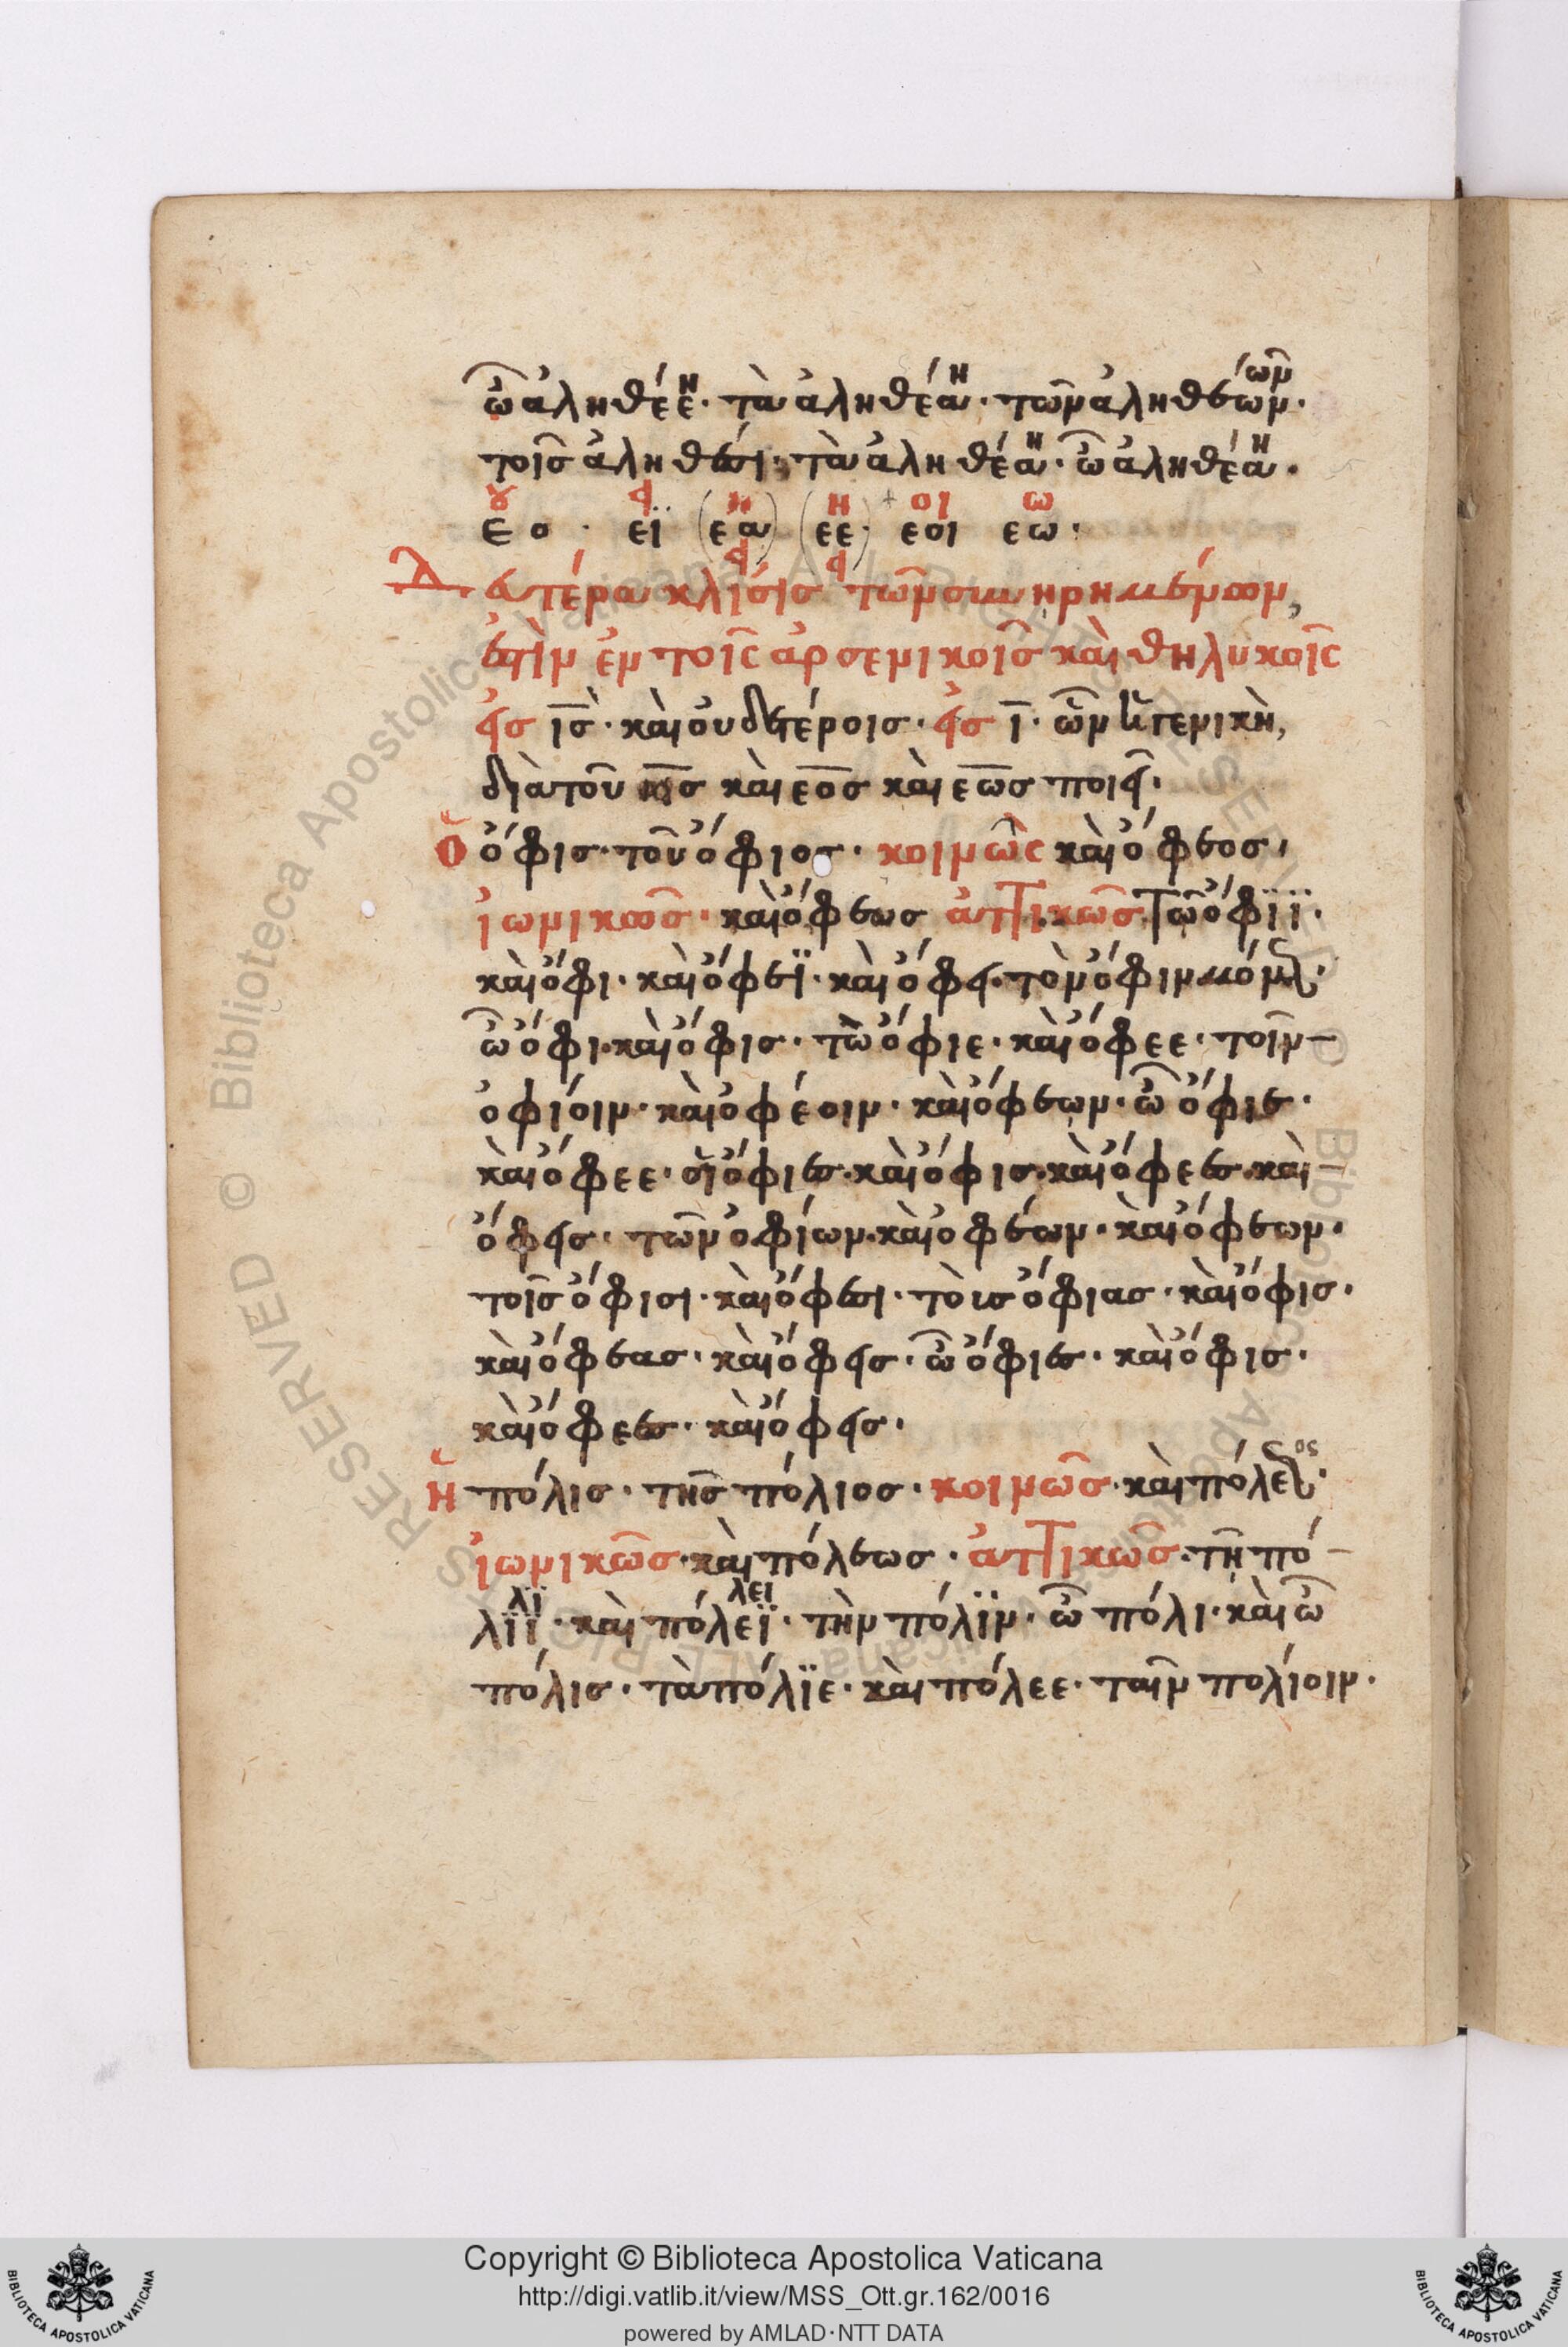 ὦ ἀληθέε η. τὰ ἀληθέα ῆ. τῶν ἀληθέων ῶν.
τοῖς ἀληθέσι. τὰ ἀληθέα ῆ. ὦ ἀληθέα ῆ.
ου ει η η οι ω
εο · εϊ (εα) (εε) · εοι εω ·
ει ει
Δευτέρα κλίσις τῶν συνηρημένων,
ἐστὶν ἐν τοῖς ἀρσενικοῖς καὶ θηλυκοῖς
εἰς ις. καὶ οὐδετέροις. εἰς ι. ὧν ἡ γενικὴ,
διὰ τοῦ ιος καὶ εος καὶ εως ποιεῖ.
Ὁ ὄφις. τοῦ ὄφιος. κοινῶς καὶ ὄφεος,
ἰωνικῶς. καὶ ὄφεως ἀττικῶς. τῶ ὄφιϊ.
καὶ ὄφι. καὶ ὄφεϊ. καὶ ὄφει. τὸν ὄφιν μόνως.
ὦ ὄφι. καὶ ὄφις. τὼ ὄφιε. καὶ ὄφεε. τοῖν
ὀφίοιν. καὶ ὀφέοιν. καὶ ὄφεων. ὦ ὄφιε.
καὶ ὄφεε. οἱ ὄφιες. καὶ ὄφις. καὶ ὄφεες. καὶ
ὄφεις. τῶν ὀφίων. καὶ ὀφέων. καὶ ὄφεων.
τοῖς ὄφισι. καὶ ὄφεσι. τοὺς ὄφιας. καὶ ὄφις.
καὶ ὄφεας. καὶ ὄφεις. ὦ ὄφιες. καὶ ὄφις.
καὶ ὄφεες. καὶ ὄφεις.
Ἡ πόλις. τῆς πόλιος. κοινῶς. καὶ πόλεος.
ἰωνικῶς. καὶ πόλεως. ἀττικῶς. τῆ πό-
λιϊ λϊ. καὶ πόλεϊ λει. τὴν πόλϊν. ὦ πόλι. καὶ ὦ
πόλις. τὰ πόλϊε. καὶ πόλεε. ταῖν πολίοιν.
Copyright © Biblioteca Apostolica Vaticana
http://digi.vatlib.it/view/MSS_Ott.gr.162/0016
powered by AMLAD·NTT DATA